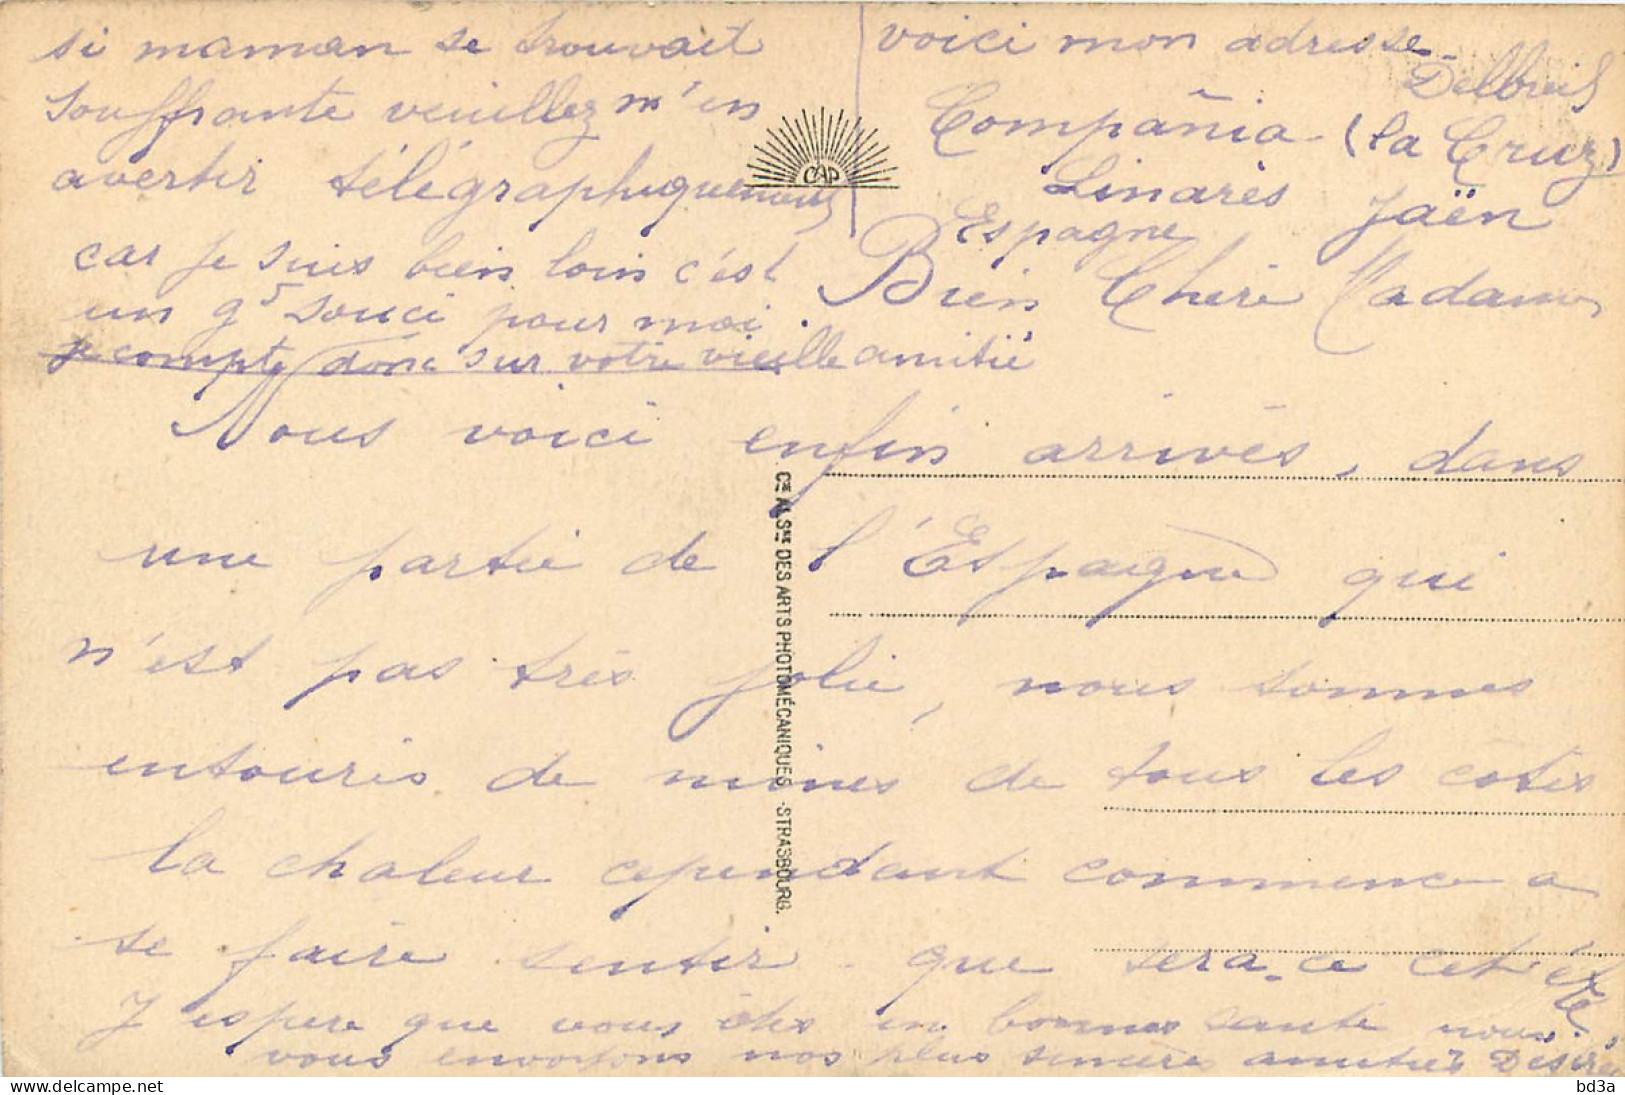 voici mon adresse
Delbreil
Compañia (la Cruz)
Linarès Jaën
Espagne
Bien Chère Madame
Nous voici enfin arrivés, dans
une partie de l'Espagne qui
n'est pas très jolie, nous sommes
entourés de mines de tous les cotés
la chaleur cependant commence a
se faire sentir que sera-ce cet été
J'espère que vous êtes en bonnes santé nous
vous envoyons nos plus sincères amitiés Désirée
si maman se trouvait
souffrante veuillez m'en
avertir télégraphiquement
car je suis bien loin c'est
un gd souci pour moi.
je compte donc sur votre vieille amitié
CAP
Cie ALSne DES ARTS PHOTOMÉCANIQUES - STRASBOURG.
bd3a